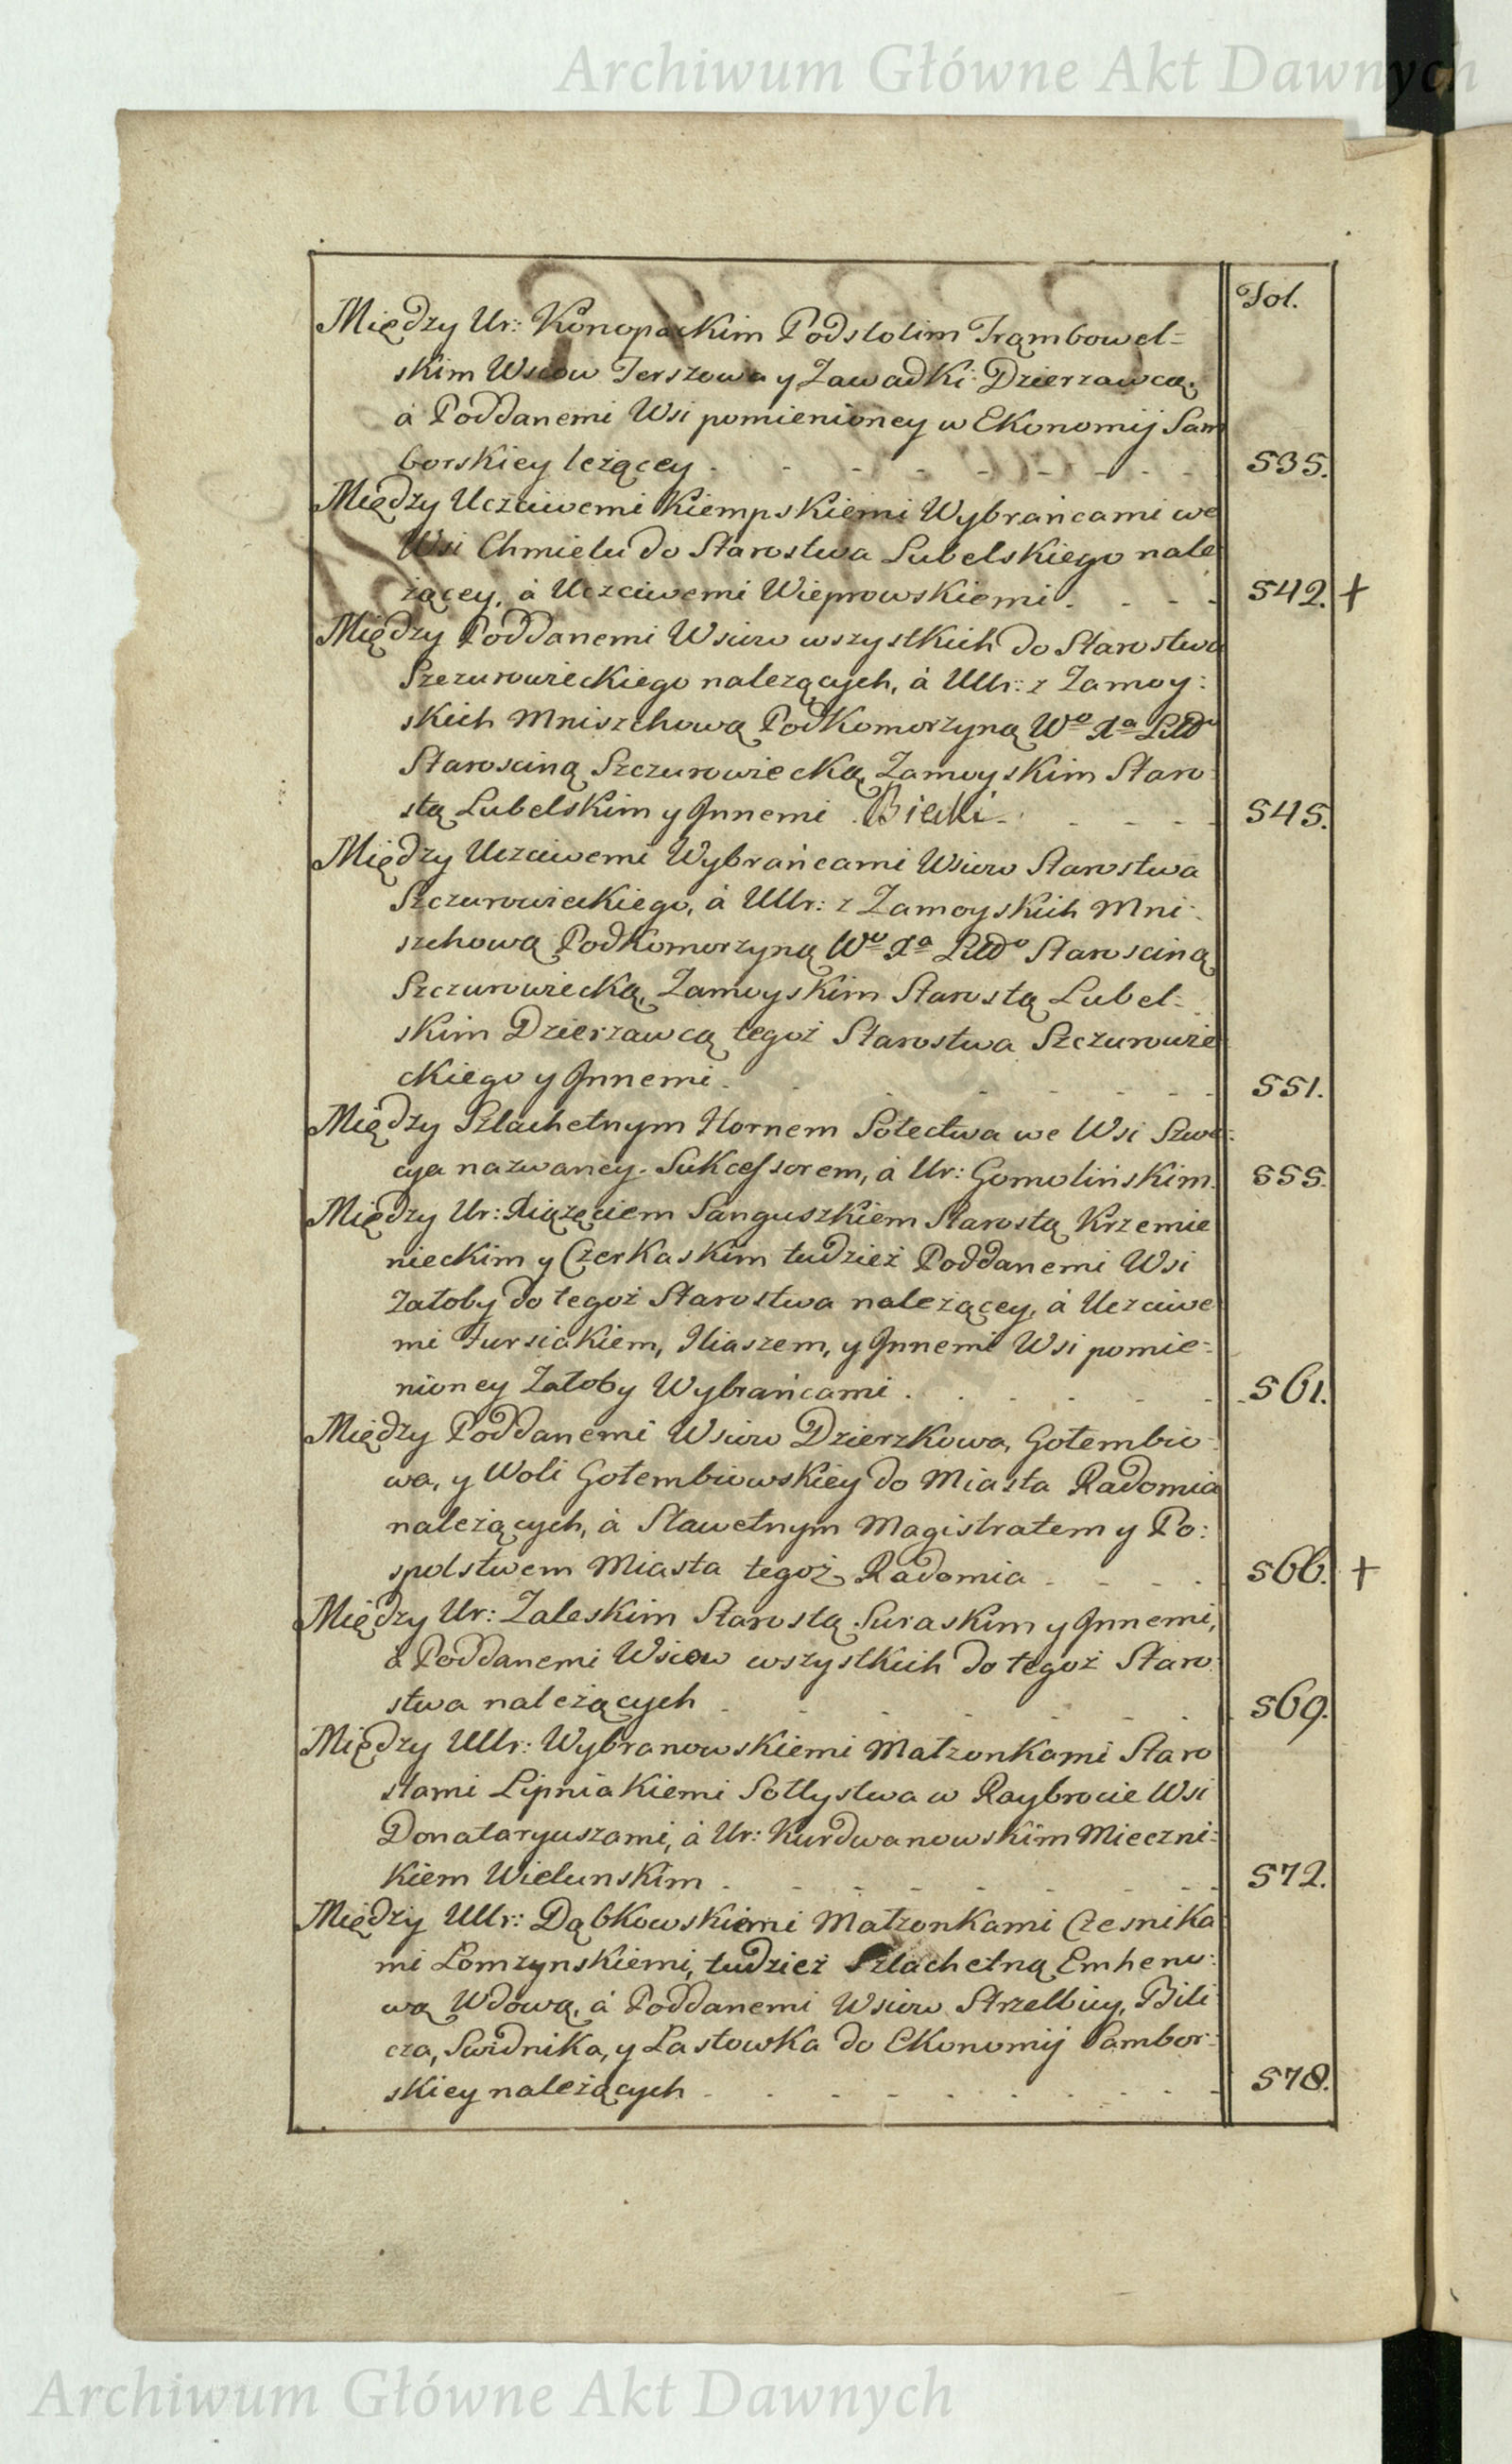 Archiwum Główne Akt Dawnych
Fol.
Między Ur: Konopackim Podstolim Trąmbowel=
skim Wsiow Terszowa y Zawadki Dzierzawcą,
á Poddanemi Wsi pomienioney w Ekonomij Sam
borskiey leżącey 535.
Między Uczciwemi Kiempskiemi Wybrańcami we
Wsi Chmielu do Starostwa Lubelskiego nale
żącey, á Uczciwemi Wieprowskiemi 542. +
Między Poddanemi Wsiow wszystkich do Starostwa
Szczurowieckiego należących, á UUr: z Zamoy:
skich Mniszchową Podkomorzyną Wo Xa Litto
Starosciną Szczurowiecką, Zamoyskim Staro
stą Lubelskim y Jnnemi 545.
Między Uczciwemi Wybrańcami Wsiow Starostwa
Szczurowieckiego, á UUr: z Zamoyskich Mni:
szchową Podkomorzyną Wo Xa Litto Starosciną
Szczurowiecką, Zamoyskim Starostą Lubel:
skim Dzierzawcą tegoż Starostwa Szczurowie
ckiego y Jnnemi 551.
Między Szlachetnym Hornem Sołectwa we Wsi Szwe:
cya nazwaney Sukcessorem, á Ur: Gomolińskim 555.
Między Ur: Xiążęciem Sanguszkiem Starostą Krzemie
nieckim y Czerkaskim tudzież Poddanemi Wsi
Załoby do tegoż Starostwa należącey, á Uczciwe
mi Fursiakiem, Iliaszem, y Jnnemi Wsi pomie=
nioney Załoby Wybrańcami 561.
Między Poddanemi Wsiow Dzierzkowa, Gołembio
wa, y Woli Gołembiowskiey do Miasta Radomia
należących, á Sławetnym Magistratem y Po:
spolstwem Miasta tegoż Radomia 566. +
Między Ur: Zaleskim Starostą Suraskim y Jnnemi,
á Poddanemi Wsiow wszystkich do tegoż Staro
stwa należących 569.
Między UUr: Wybranowskiemi Małzonkami Staro
stami Lipniakiemi Sołtystwa w Raybrocie Wsi
Donataryuszami, á Ur: Kurdwanowskim Mieczni:
kiem Wielunskim 572.
Między UUr: Dąbkowskiemi Małzonkami Czesnika
mi Łomzynskiemi, tudzież Szlachetną Emheno:
wą Wdową, á Poddanemi Wsiow Strzelbicy, Bili
cza, Swidnika, y Łastowka do Ekonomij Sambor:
skiey należących 578.
Archiwum Główne Akt Dawnych